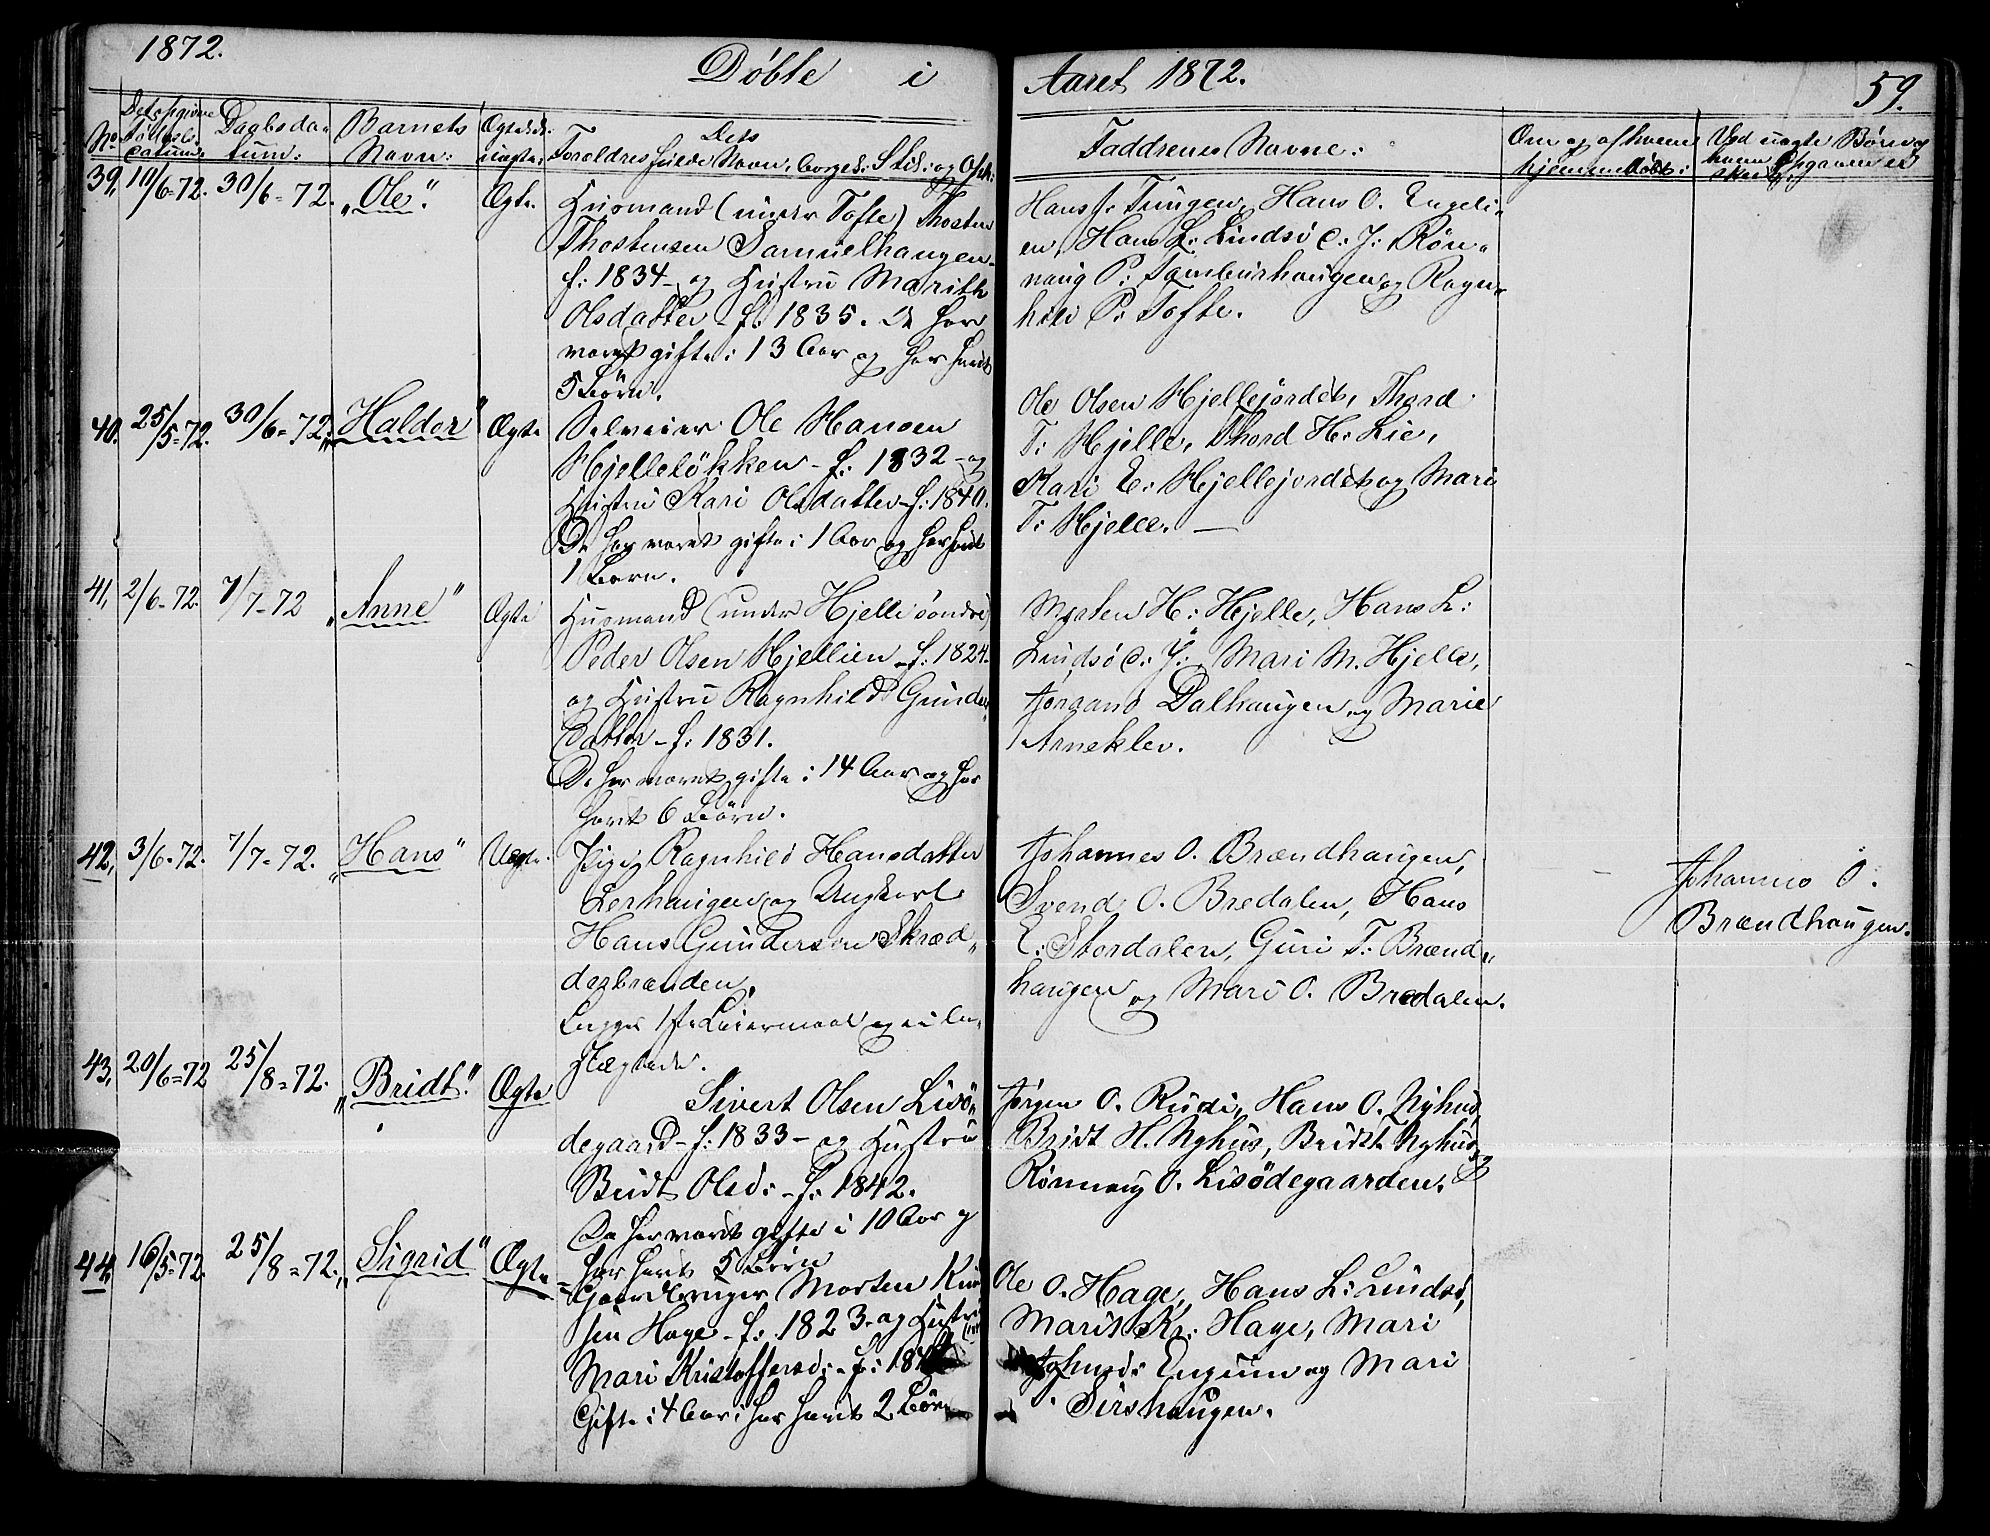 1872.
Döbte i
Aaret 1872.
59.
No
Daabsda-
tum:
Barnets
Navn:
Ægte el.
uægte:
Dets
Forældres fulde Navn, Borgel: Stil: og Opch:
Faddrenes Navne:
Om og af hvem
hjemmedöbt:
Ved uægte Börn og
39, 10/6-72. 30/6-72. "Ole" Ægte.
Husmand (under Tofte) Thosten
Thostensen Samuelhaugen-
f: 1834- og Hustru Marith
Olsdatter - f: 1835. De har
været gifte i 13 Aar og har havt
5 Börn.
Hans J: Tungen, Hans O. Engeli-
en, Hans L: Lindsö c. J: Rön-
naug P: Tamburhaugen og Ragn-
hild P: Tofte.
40. 25/5-72. 30/6-72. "Haldor" Ægte
Selveier Ole Hansen
Hjellelökken - f: 1832 - og
Hustru Kari Olsdatter - f: 1840.
De har været gifte i 1 Aar og har havt
1 Barn.
Ole Olsen Hjellejordet, Thord
T: Hjelle, Thord H: Lie,
Kari E: Hjellejordet og Mari
T: Hjelle. —
41, 2/6-72. 7/7-72 "Anne" Ægte
Husmand (under Hjelle söndre)
Peder Olsen Hjellien - f: 1824.
og Hustru Ragnhild Gunders
datter - f: 1831.
De har været gifte i 14 Aar og har
havt 6 Börn.
Morten H: Hjelle, Hans L:
Lindsö c: J:, Mari M. Hjelle,
Jörgand Dalhaugen og Marie
Arneklev.
42, 3/6-72. 7/7-72. "Hans" Uægte.
Pige Ragnhild Hansdatter
Lerhaugen og Ungkarl
Hans Gunderson Skræd-
derbrænden.
Begges 1ste Leiermaal og ei be-
slægtede.
Johannes O. Brændhaugen,
Svend O. Bredalen, Hans
E: Stordalen, Guri T: Brænd-
haugen og Mari O. Bredalen.
Johannes O.
Brændhaugen.
43, 20/6-72 25/8-72. "Bridt" Ægte
Sivert Olsen Lisö-
degaard - f: 1833 - og Hustru
Bridt Olsd: - f: 1842.
De har været gifte i 10 Aar og
har havt 5 Börn
Jörgen O. Rudi, Hans O. Nyhus,
Bridt H. Nyhus, Bridt Nyhus og
Rönnaug O. Lisödegaarden.
44, 16/5-72. 25/8-72. "Sigrid" Ægte
Gaardbruger Morten
sen Hage - f: 1823 - og Hustru
Mari Kristoffersd: - f: 18
Gifte i 4 Aar; har havt 2 Börn
Ole O. Hage, Hans L: Lindsö,
Marit Kr: Hage, Mari
Johnsd: Engum og Mari
Sirshaugen.